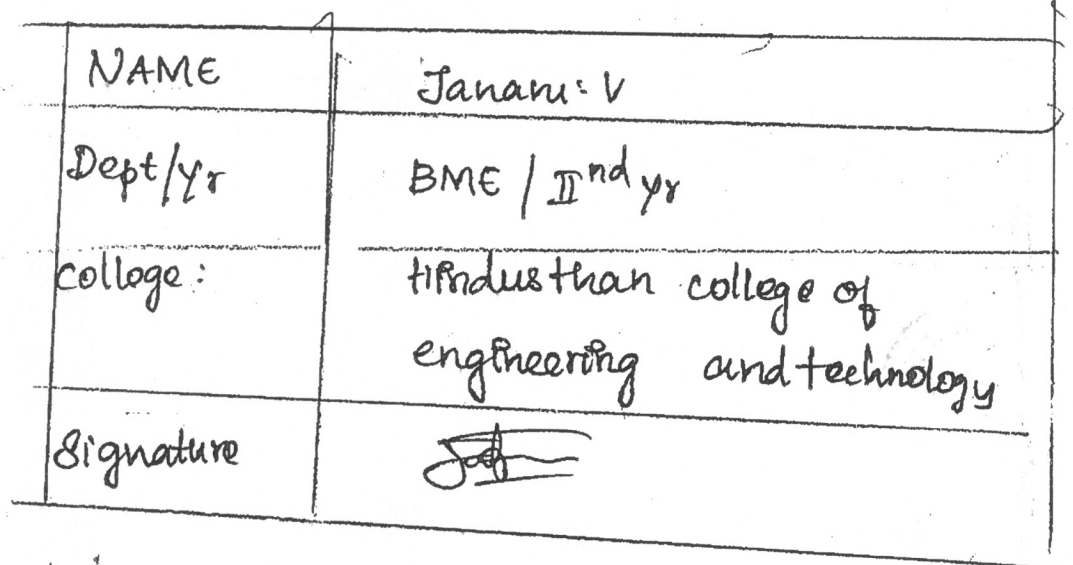 NAME Janani: V
Dept/yr BME / IInd yr
college: Hindusthan college of
engineering and technology
Signature